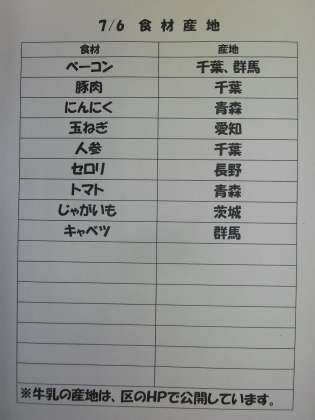 7/6 食材産地
食材 産地
ベーコン 千葉、群馬
豚肉 千葉
にんにく 青森
玉ねぎ 愛知
人参 千葉
セロリ 長野
トマト 青森
じゃがいも 茨城
キャベツ 群馬
※牛乳の産地は、区のHPで公開しています。